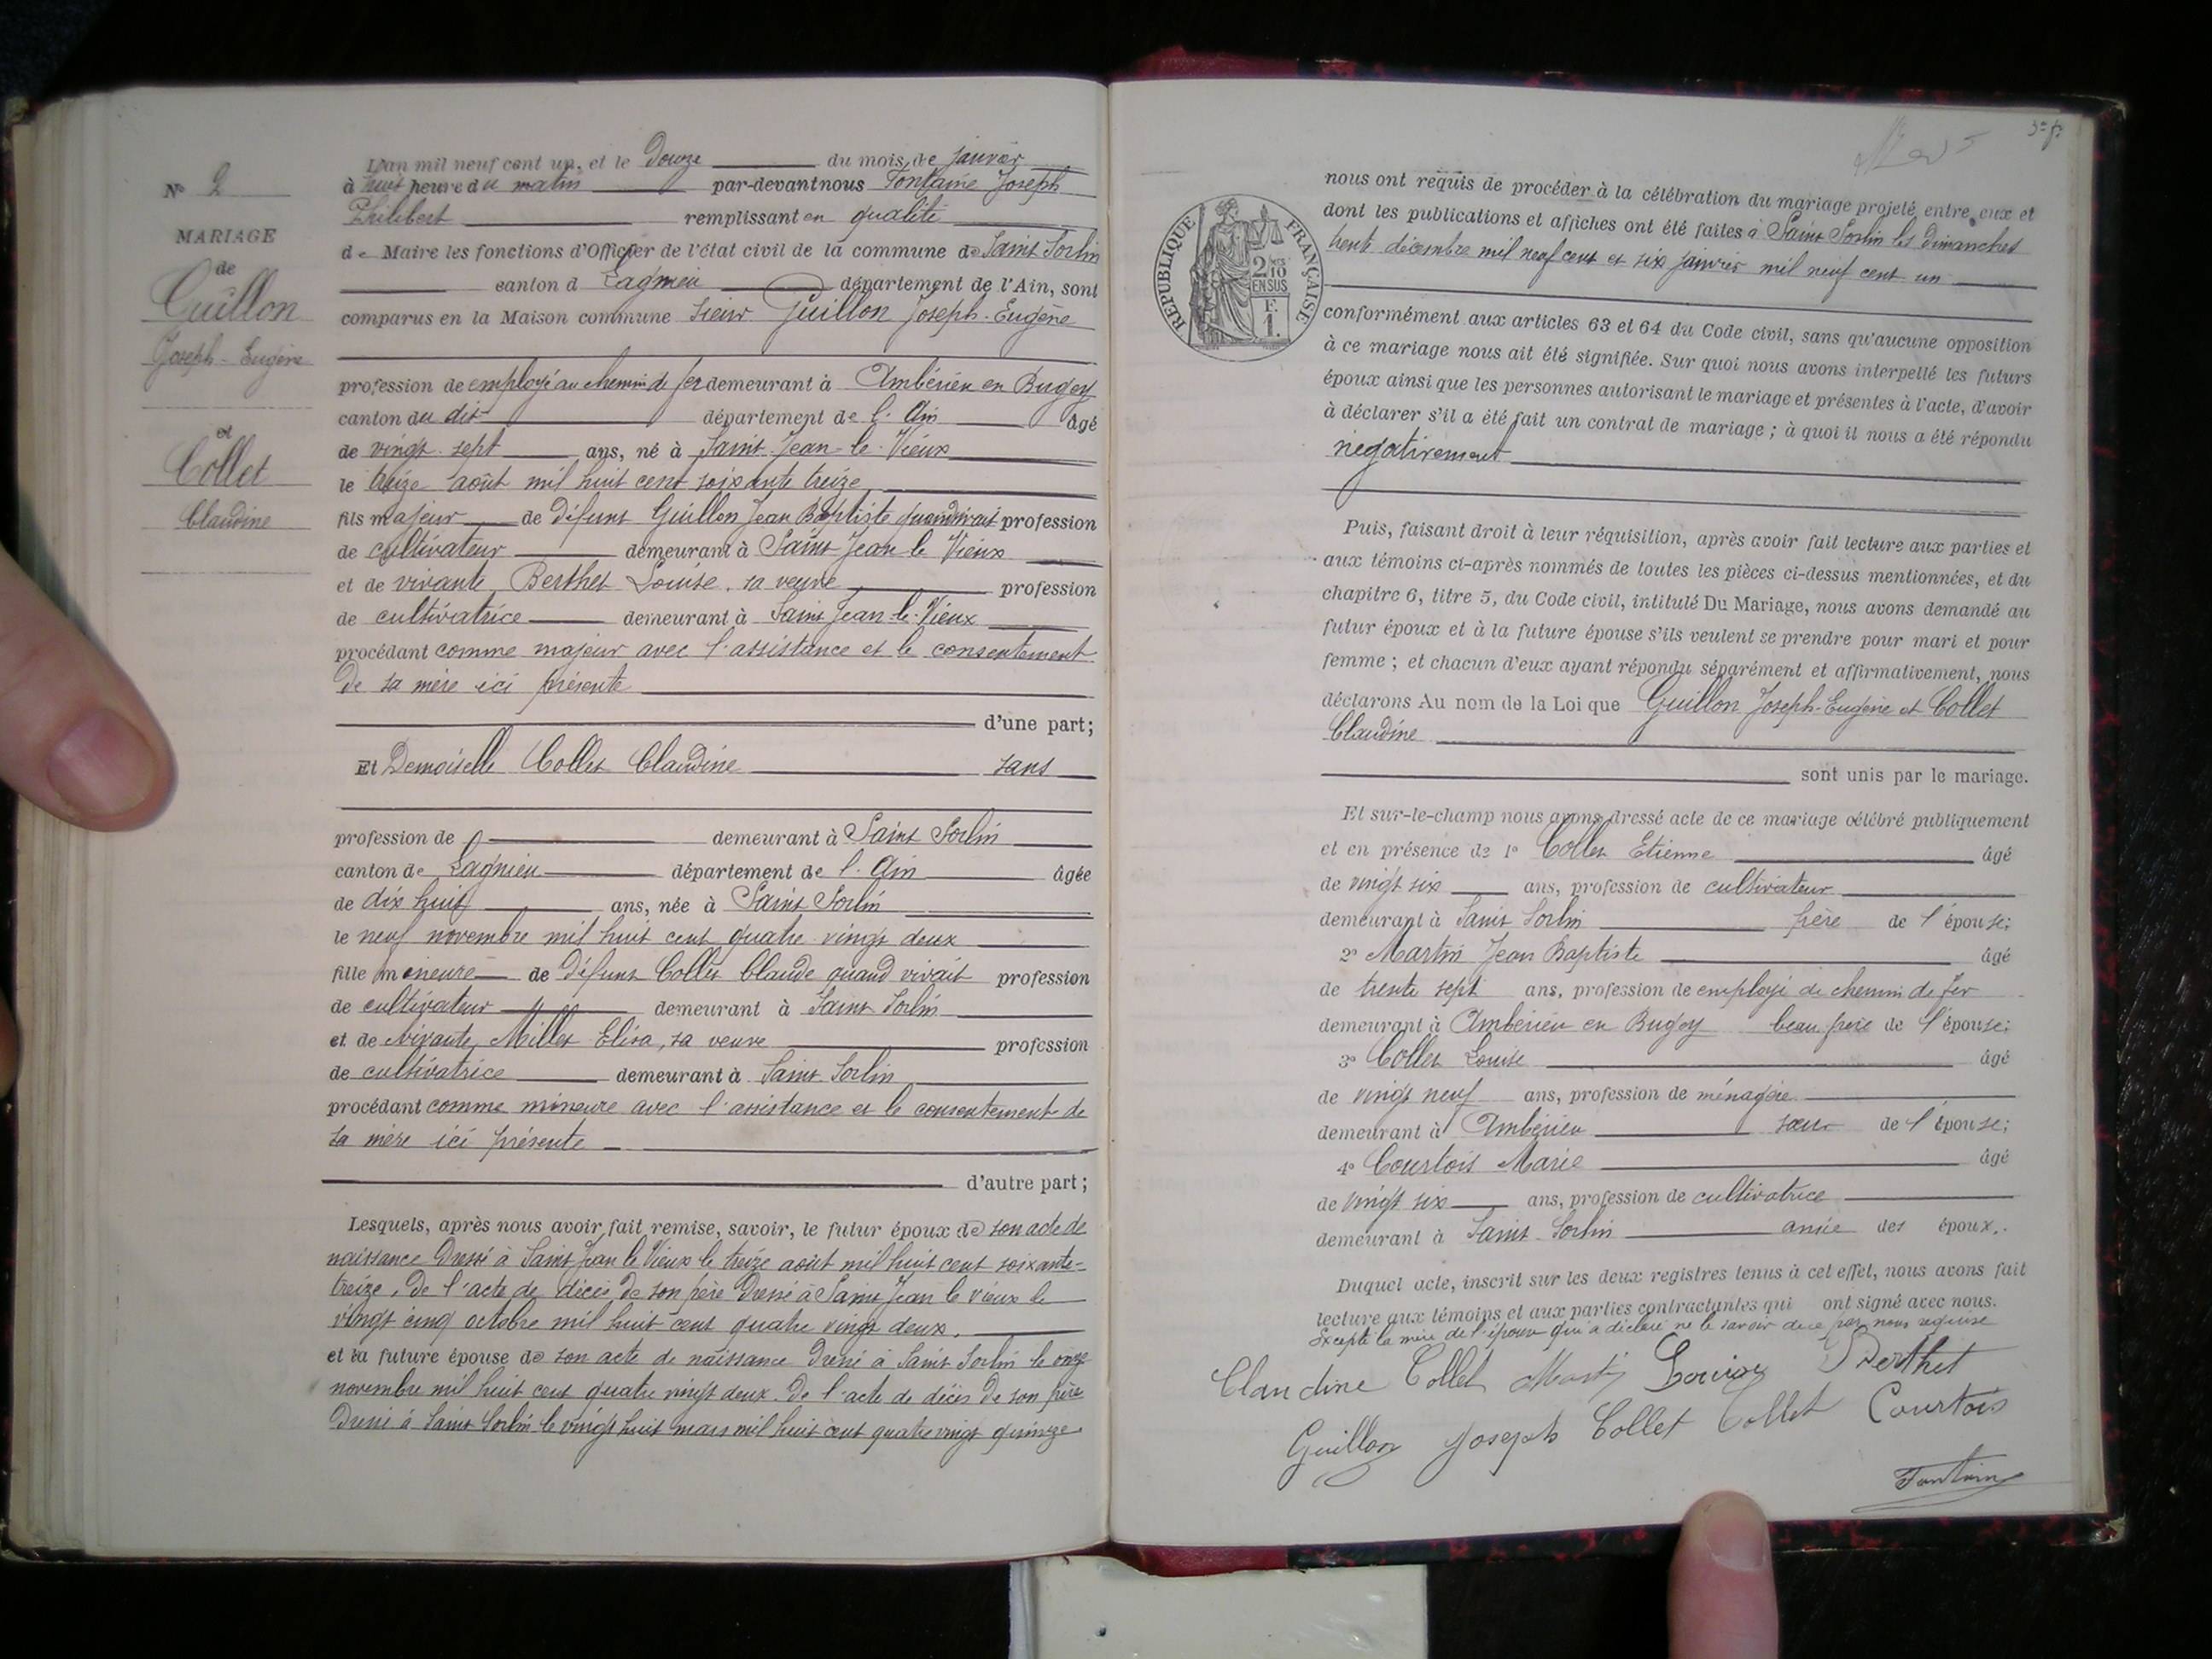 N° 2
MARIAGE
de
Guillon
Joseph-Eugène
et
Collet
Claudine
L'an mil neuf cent un, et le Douze du mois de Janvier
à huit heure du matin par-devant nous Fontaine Joseph
Philibert remplissant en qualité
de Maire les fonctions d'Officier de l'état civil de la commune de Saint Sorlin
canton d Lagnieu département de l'Ain, sont
comparus en la Maison commune sieur Guillon Joseph-Eugène
profession de employé au chemin de fer demeurant à Ambérieu en Bugey
canton du dit département de l'Ain âgé
de vingt-sept ans, né à Saint-Jean-le-Vieux
le treize août mil huit cent soixante treize
fils majeur de défunt Guillon Jean Baptiste quand vivait profession
de cultivateur demeurant à Saint Jean le Vieux
et de vivante Berthet Louise, sa veuve profession
de cultivatrice demeurant à Saint Jean-le-Vieux
procédant comme majeur avec l'assistance et le consentement
de sa mère ici présente
d'une part;
Et Demoiselle Collet Claudine sans
profession de demeurant à Saint Sorlin
canton de Lagnieu département de l'Ain âgée
de dix huit ans, née à Saint Sorlin
le neuf novembre mil huit cent quatre vingt deux
fille mineure de défunt Collet Claude quand vivait profession
de cultivateur demeurant à Saint Sorlin
et de vivante, Millet Elisa, sa veuve profession
de cultivatrice demeurant à Saint Sorlin
procédant comme mineure avec l'assistance et le consentement de
sa mère ici présente
d'autre part;
Lesquels, après nous avoir fait remise, savoir, le futur époux de son acte de
naissance dressé à Saint Jean le Vieux le treize août mil huit cent soixante-
treize, de l'acte de décès de son père dressé à Saint Jean le vieux le
vingt cinq octobre mil huit cent quatre vingt deux.
et la future épouse de son acte de naissance dressé à Saint Sorlin le onze
novembre mil huit cent quatre vingt deux. De l'acte de décès de son père
dressé à Saint Sorlin le vingt huit mars mil huit cent quatre vingt quinze
RÉPUBLIQUE FRANÇAISE
2/10
EN SUS
F.
1.
nous ont requis de procéder à la célébration du mariage projeté entre eux et
dont les publications et affiches ont été faites à Saint Sorlin les dimanches
trente décembre mil neuf cent et six janvier mil neuf cent un
conformément aux articles 63 et 64 du Code civil, sans qu'aucune opposition
à ce mariage nous ait été signifiée. Sur quoi nous avons interpellé les futurs
époux ainsi que les personnes autorisant le mariage et présentes à l'acte, d'avoir
à déclarer s'il a été fait un contrat de mariage; à quoi il nous a été répondu
négativement
Puis, faisant droit à leur réquisition, après avoir fait lecture aux parties et
aux témoins ci-après nommés de toutes les pièces ci-dessus mentionnées, et du
chapitre 6, titre 5, du Code civil, intitulé Du Mariage, nous avons demandé au
futur époux et à la future épouse s'ils veulent se prendre pour mari et pour
femme; et chacun d'eux ayant répondu séparément et affirmativement, nous
déclarons Au nom de la Loi que Guillon Joseph-Eugène et Collet
Claudine
sont unis par le mariage.
Et sur-le-champ nous avons dressé acte de ce mariage célébré publiquement
et en présence de 1° Collet Etienne âgé
de vingt six ans, profession de cultivateur
demeurant à Saint Sorlin frère de l'épouse;
2° Martin Jean Baptiste âgé
de trente sept ans, profession de employé de chemin de fer
demeurant à Ambérieu en Bugey beau frère de l'épouse;
3° Collet Louise âgé
de vingt neuf ans, profession de ménagère
demeurant à Ambérieu sœur de l'épouse;
4° Courtois Marie âgé
de vingt six ans, profession de cultivatrice
demeurant à Saint Sorlin amie des époux.
Duquel acte, inscrit sur les deux registres tenus à cet effet, nous avons fait
lecture aux témoins et aux parties contractantes qui ont signé avec nous.
Excepté la mère de l'épouse qui a déclaré ne le savoir de ce par nous requise
Claudine Collet Berthet
Guillon Joseph Collet Collet Courtois
Fontaine